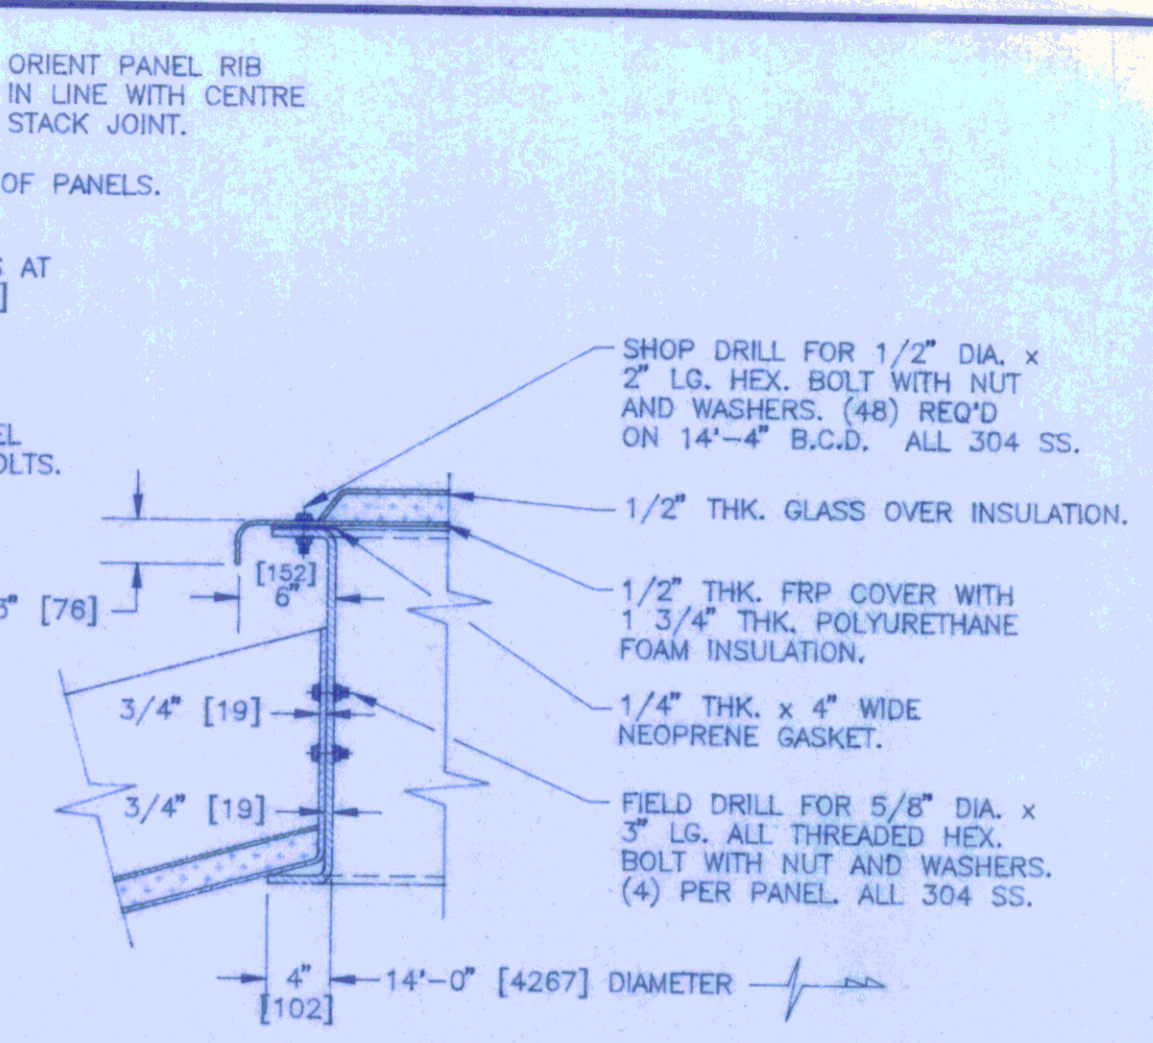 ORIENT PANEL RIB
IN LINE WITH CENTRE
STACK JOINT.
OF PANELS.
AT
]
OLTS.
SHOP DRILL FOR 1/2" DIA. x
2" LG. HEX. BOLT WITH NUT
AND WASHERS. (48) REQ'D
ON 14'-4" B.C.D. ALL 304 SS.
1/2" THK. GLASS OVER INSULATION.
[152]
6"
3" [76]
1/2" THK. FRP COVER WITH
1 3/4" THK. POLYURETHANE
FOAM INSULATION.
3/4" [19]
1/4" THK. x 4" WIDE
NEOPRENE GASKET.
3/4" [19]
FIELD DRILL FOR 5/8" DIA. x
3" LG. ALL THREADED HEX.
BOLT WITH NUT AND WASHERS.
(4) PER PANEL. ALL 304 SS.
4" 14'-0" [4267] DIAMETER
[102]